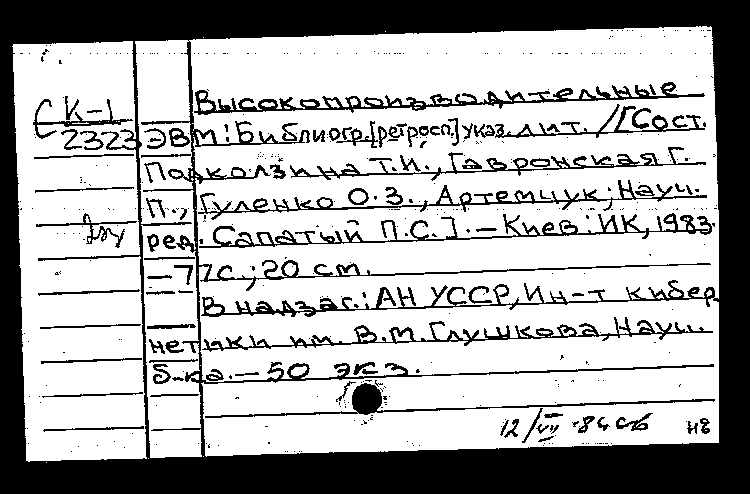 Высокопроизводительные
СК-1
2323 ЭВМ: Библиогр.[ретросп.] указ. лит. / [Сост.
Подколзина Т.И., Гавронская Г.
П., Гуленко О.З., Артемчук; Науч.
ред. Сапатый П.С.]. – Киев: ИК, 1983.
– 77с.; 20 см.
В надзаг.: АН УССР, Ин-т кибер
нетики им. В.М. Глушкова, Науч.
б-ка. – 50 экз.
12/VII-84
нв